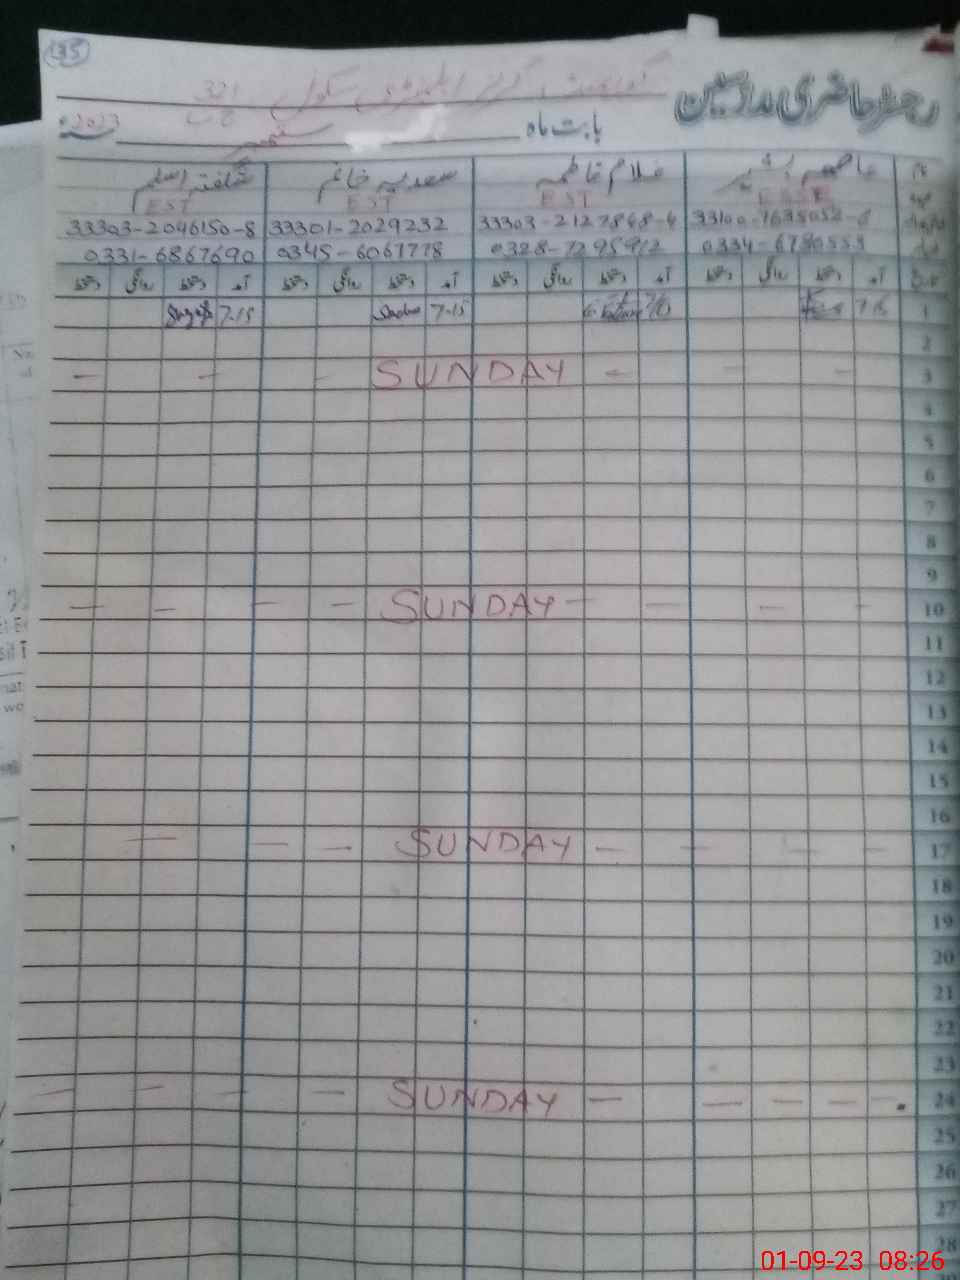 135
رجسٹر حاضری ملازمین
گورنمنٹ گرلز ایلیمنٹری سکول 321 گ ب
بابت ماہ ستمبر 2023ء
نام عاصمہ بشیر غلام فاطمہ سعدیہ خانم شگفتہ اسلم
عہدہ ESSE EST EST EST
33303-2127848-4 33301-2029232 33303-2046150-8
0334-6780553 0328-7295912 0345-6067778 0331-6867690
تاریخ آمد دستخط روانگی دستخط آمد دستخط روانگی دستخط آمد دستخط روانگی دستخط آمد دستخط روانگی دستخط
1 7-15 7-15
2
3 SUNDAY
4
5
6
7
8
9
10 SUNDAY
11
12
13
14
15
16
17 SUNDAY
18
19
20
21
22
23
24 SUNDAY
25
26
27
28
01-09-23 08:26